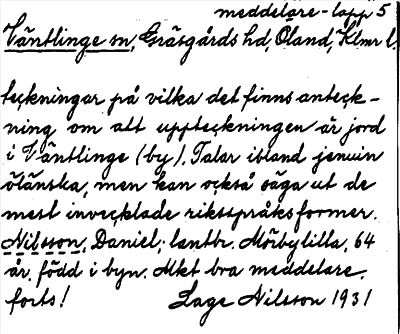 meddelare-lapp 5
Väntlinge sn, Gräsgårds hd, Öland, Klmr l.
teckningar på vilka det finns anteck-
ning om att uppteckningen är jord
i Väntlinge (by). Talar ibland jenuin
öländska, men kan också säga ut de
mest invecklade riksspråksformer.
Nilsson, Daniel; lantbr. Mörbylilla, 64
år. född i byn. Mkt bra meddelare.
forts! Lage Nilsson 1931